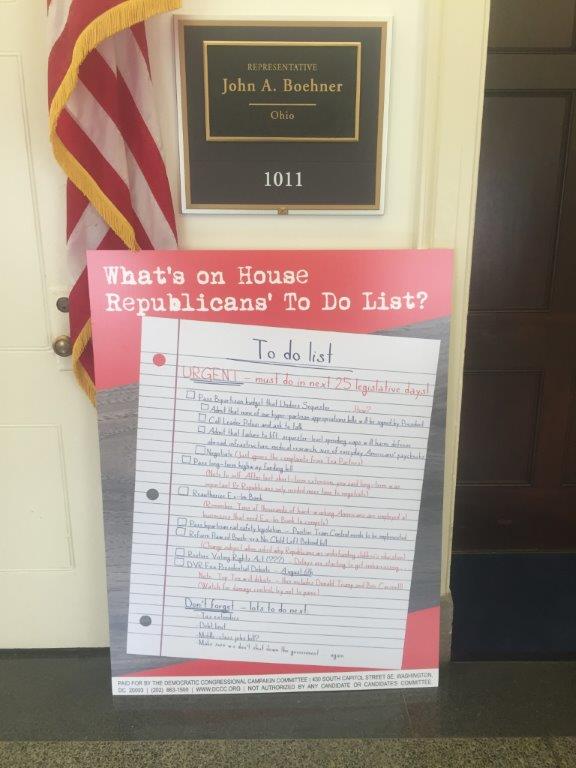 REPRESENTATIVE
John A. Boehner
Ohio
1011
What's on House
Republicans' To Do List?
To do list
URGENT - must do in next 25 legislative days!
Pass Bipartisan budget that Undoes Sequester
Admit that none of our hyper-partisan appropriations bills will be signed by President
Call Leader Pelosi and ask to talk
Admit that failure to lift sequester-level spending caps will harm defense
abroad, infrastructure, medical research, and everyday Americans' paychecks
Negotiate (Just ignore the complaints from Tea Partiers)
Pass long-term highway funding bill
(Note to self: After last short-term extension, you said long-term was
important & Republicans only needed more time to negotiate)
Reauthorize Ex-Im Bank
(Remember: Tens of thousands of hard-working Americans are employed at
businesses that need Ex-Im Bank to compete)
Pass bipartisan rail safety legislation - Positive Train Control needs to be implemented
Reform Flawed Bush-era No Child Left Behind bill
(Change subject when asked why Republicans are undermining children's education)
Restore Voting Rights Act (????) - Delays are starting to get embarrassing
DVR Fox Presidential Debate - August 6th
Note: Top Ten will debate - this includes Donald Trump and Ben Carson!!!
(Watch for damage control; try not to panic)
Don't forget - lots to do next
- Tax extenders
- Debt limit
- Middle-class jobs bill?
- Make sure we don't shut down the government again
PAID FOR BY THE DEMOCRATIC CONGRESSIONAL CAMPAIGN COMMITTEE | 430 SOUTH CAPITOL STREET SE, WASHINGTON,
DC 20003 | (202) 863-1500 | WWW.DCCC.ORG | NOT AUTHORIZED BY ANY CANDIDATE OR CANDIDATE'S COMMITTEE.